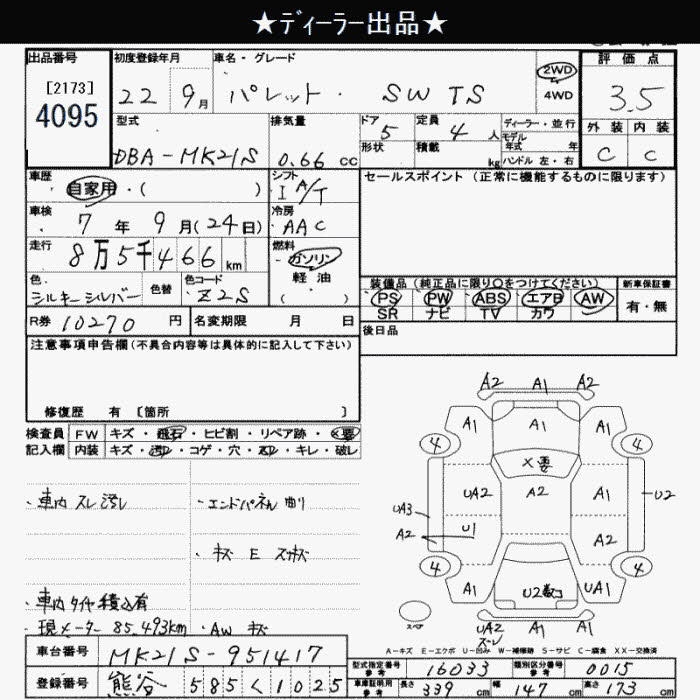 ★ディーラー出品★
出品番号 初度登録年月 車名・グレード 2WD 評価点
[2173] 22 9月 パレット・ SW TS 4WD 3.5
4095 型式 排気量 ドア 定員 ディーラー・並行 外装 内装
DBA-MK21S 0.66 cc 5 4人 モデル年式 年 C C
形状 積載 kg ハンドル 左・右
車歴 自家用・( ) シフト I A/T セールスポイント (正常に機能するものに限ります)
車検 7年 9月(24日) 冷房 AAC
走行 8万5千466km 燃料 ガソリン
軽油
( )
色 シルキーシルバー 色替 色コード Z2S 装備品(純正品に限り○をつけてください) 新車保証書
PS PW ABS エアB AW 有・無
SR ナビ TV カワ
R券 10270円 名変期限 月 日 後日品
注意事項申告欄(不具合内容等は具体的に記入して下さい)
修復歴 有 [箇所 ]
検査員 FW キズ・飛石・ヒビ割・リペア跡・X要
記入欄 内装 キズ・汚レ・コゲ・穴・・キレ・破レ
・車内 スレ 汚レ ・エンドパネル 曲り
・キズ E スリキズ
・車内 タイヤ 積込有
・現メーター 85,493km ・AW キズ
A2 A1 A2
A1 A1 A1
4 4
X要
UA2 A2 A1 U2
UA3
A2 U1 A2
4 4
A1 U2数コ UA1
スペア UA2 A1 A1
A-キズ E-エクボ U-凹み W-補修跡 S-サビ C-腐食 XX-交換済
車台番号 MK21S-951417 型式指定番号 参考 16033 類別区分番号 参考 0015
登録番号 熊谷 585 く 1025 車庫証明用 参考 長さ 339cm 幅 147cm 高さ 173cm